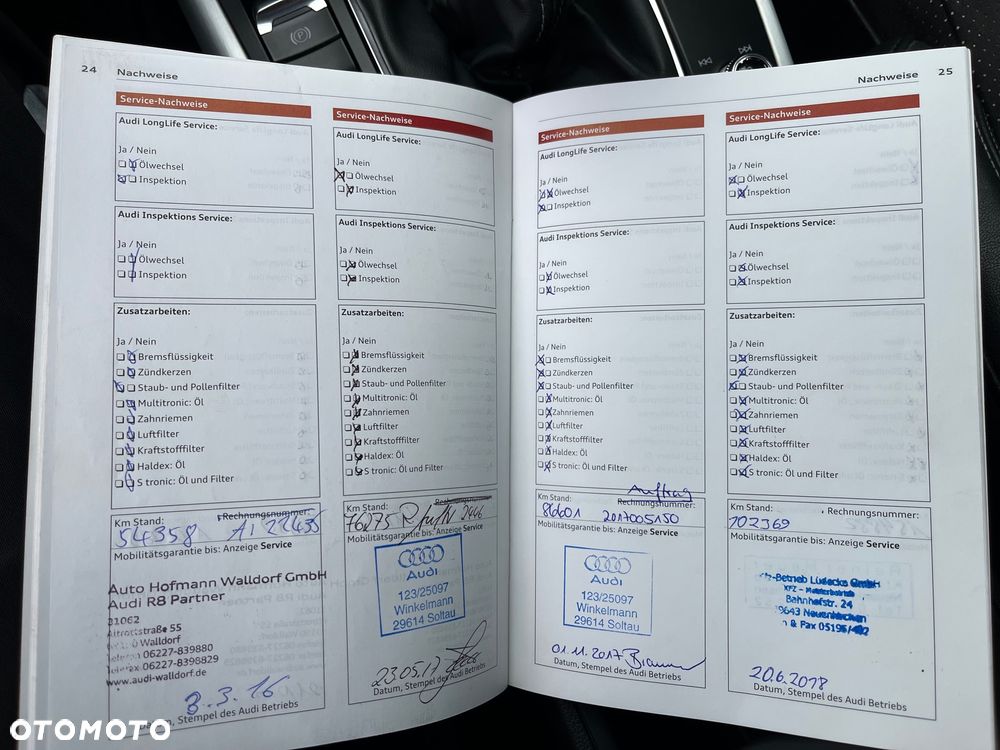 24 Nachweise
Service-Nachweise
Audi LongLife Service:
Ja / Nein
Ölwechsel
Inspektion
Audi Inspektions Service:
Ja / Nein
Ölwechsel
Inspektion
Zusatzarbeiten:
Ja / Nein
Bremsflüssigkeit
Zündkerzen
Staub- und Pollenfilter
Multitronic: Öl
Zahnriemen
Luftfilter
Kraftstofffilter
Haldex: Öl
S tronic: Öl und Filter
Km Stand: Rechnungsnummer:
54358 AI 22435
Mobilitätsgarantie bis: Anzeige Service
Auto Hofmann Walldorf GmbH
Audi R8 Partner
31062
Altrottstraße 55
Walldorf
Telefon 06227-839880
Telefax 06227-8398829
www.audi-walldorf.de
3.3.16
Datum, Stempel des Audi Betriebs
Service-Nachweise
Audi LongLife Service:
Ja / Nein
Ölwechsel
Inspektion
Audi Inspektions Service:
Ja / Nein
Ölwechsel
Inspektion
Zusatzarbeiten:
Ja / Nein
Bremsflüssigkeit
Zündkerzen
Staub- und Pollenfilter
Multitronic: Öl
Zahnriemen
Luftfilter
Kraftstofffilter
Haldex: Öl
S tronic: Öl und Filter
Km Stand: Rechnungsnummer
76275
Mobilitätsgarantie bis: Anzeige Service
Audi
123/25097
Winkelmann
29614 Soltau
23.05.17
Datum, Stempel des Audi Betriebs
Nachweise 25
Service-Nachweise
Audi LongLife Service:
Ja / Nein
Ölwechsel
Inspektion
Audi Inspektions Service:
Ja / Nein
Ölwechsel
Inspektion
Zusatzarbeiten:
Ja / Nein
Bremsflüssigkeit
Zündkerzen
Staub- und Pollenfilter
Multitronic: Öl
Zahnriemen
Luftfilter
Kraftstofffilter
Haldex: Öl
S tronic: Öl und Filter
Auftrag
Km Stand: Rechnungsnummer:
86601 2017005150
Mobilitätsgarantie bis: Anzeige Service
Audi
123/25097
Winkelmann
29614 Soltau
01.11.2017
Datum, Stempel des Audi Betriebs
Service-Nachweise
Audi LongLife Service:
Ja / Nein
Ölwechsel
Inspektion
Audi Inspektions Service:
Ja / Nein
Ölwechsel
Inspektion
Zusatzarbeiten:
Ja / Nein
Bremsflüssigkeit
Zündkerzen
Staub- und Pollenfilter
Multitronic: Öl
Zahnriemen
Luftfilter
Kraftstofffilter
Haldex: Öl
S tronic: Öl und Filter
Km Stand: Rechnungsnummer:
102369
Mobilitätsgarantie bis: Anzeige Service
Betrieb Lüdecke GmbH
KFZ - Meisterbetrieb
Bahnhofstr. 24
Neuenkirchen
& Fax 05195/
20.6.2018
Datum, Stempel des Audi Betriebs
OTOMOTO